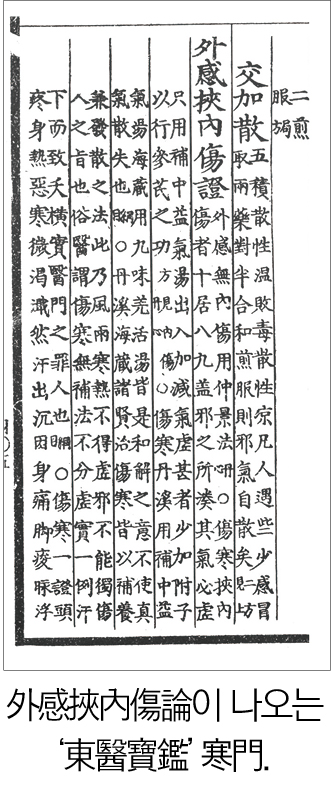 二煎
服局
交加散
五積散性温敗毒散性凉凡人遇些少感冒
取兩藥對半合和煎服則邪氣自散矣
外感挾內傷證
外感無內傷用仲景法○傷寒挾內
傷者十居八九盖邪之所湊其氣必虛
只用補中益氣湯出入加減氣虛甚者少加附子
以行參芪之功○傷寒丹溪用補中益
氣湯海藏用九味羌活湯皆是和解之意不使真
氣散失也○丹溪海藏諸賢治傷寒皆以補養
兼發散之法此乃風雨寒熱不得虛邪不能獨傷
人之旨也俗醫謂傷寒無補法不分虛實一例汗
下而致夭橫實醫門之罪人也○傷寒一證頭
疼身熱惡寒微渴濈然汗出沉困身痛脚痠脉浮
外感挾內傷論이 나오는
‘東醫寶鑑’ 寒門.